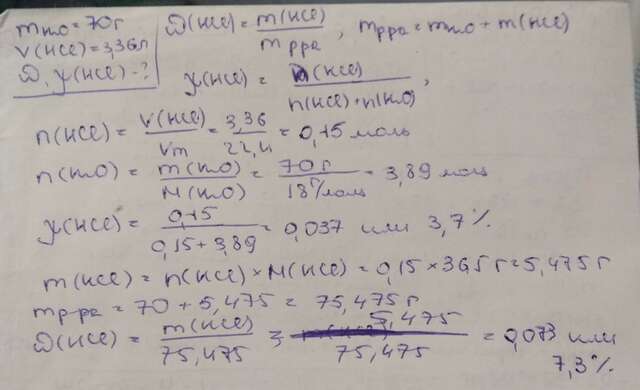 m H2O = 70 г    ω(HCl) = m(HCl) / m р-ра, m р-ра = m H2O + m(HCl)
V(HCl) = 3,36 л
ω, χ(HCl) - ?    χ(HCl) = n(HCl) / n(HCl) + n(H2O),
n(HCl) = V(HCl) / Vm = 3,36 / 22,4 = 0,15 моль
n(H2O) = m(H2O) / M(H2O) = 70 г / 18 г/моль = 3,89 моль
χ(HCl) = 0,15 / 0,15 + 3,89 = 0,037 или 3,7 %
m(HCl) = n(HCl) × M(HCl) = 0,15 × 36,5 г = 5,475 г
m р-ра = 70 + 5,475 = 75,475 г
ω(HCl) = m(HCl) / 75,475 = 5,475 / 75,475 = 0,073 или
7,3 %